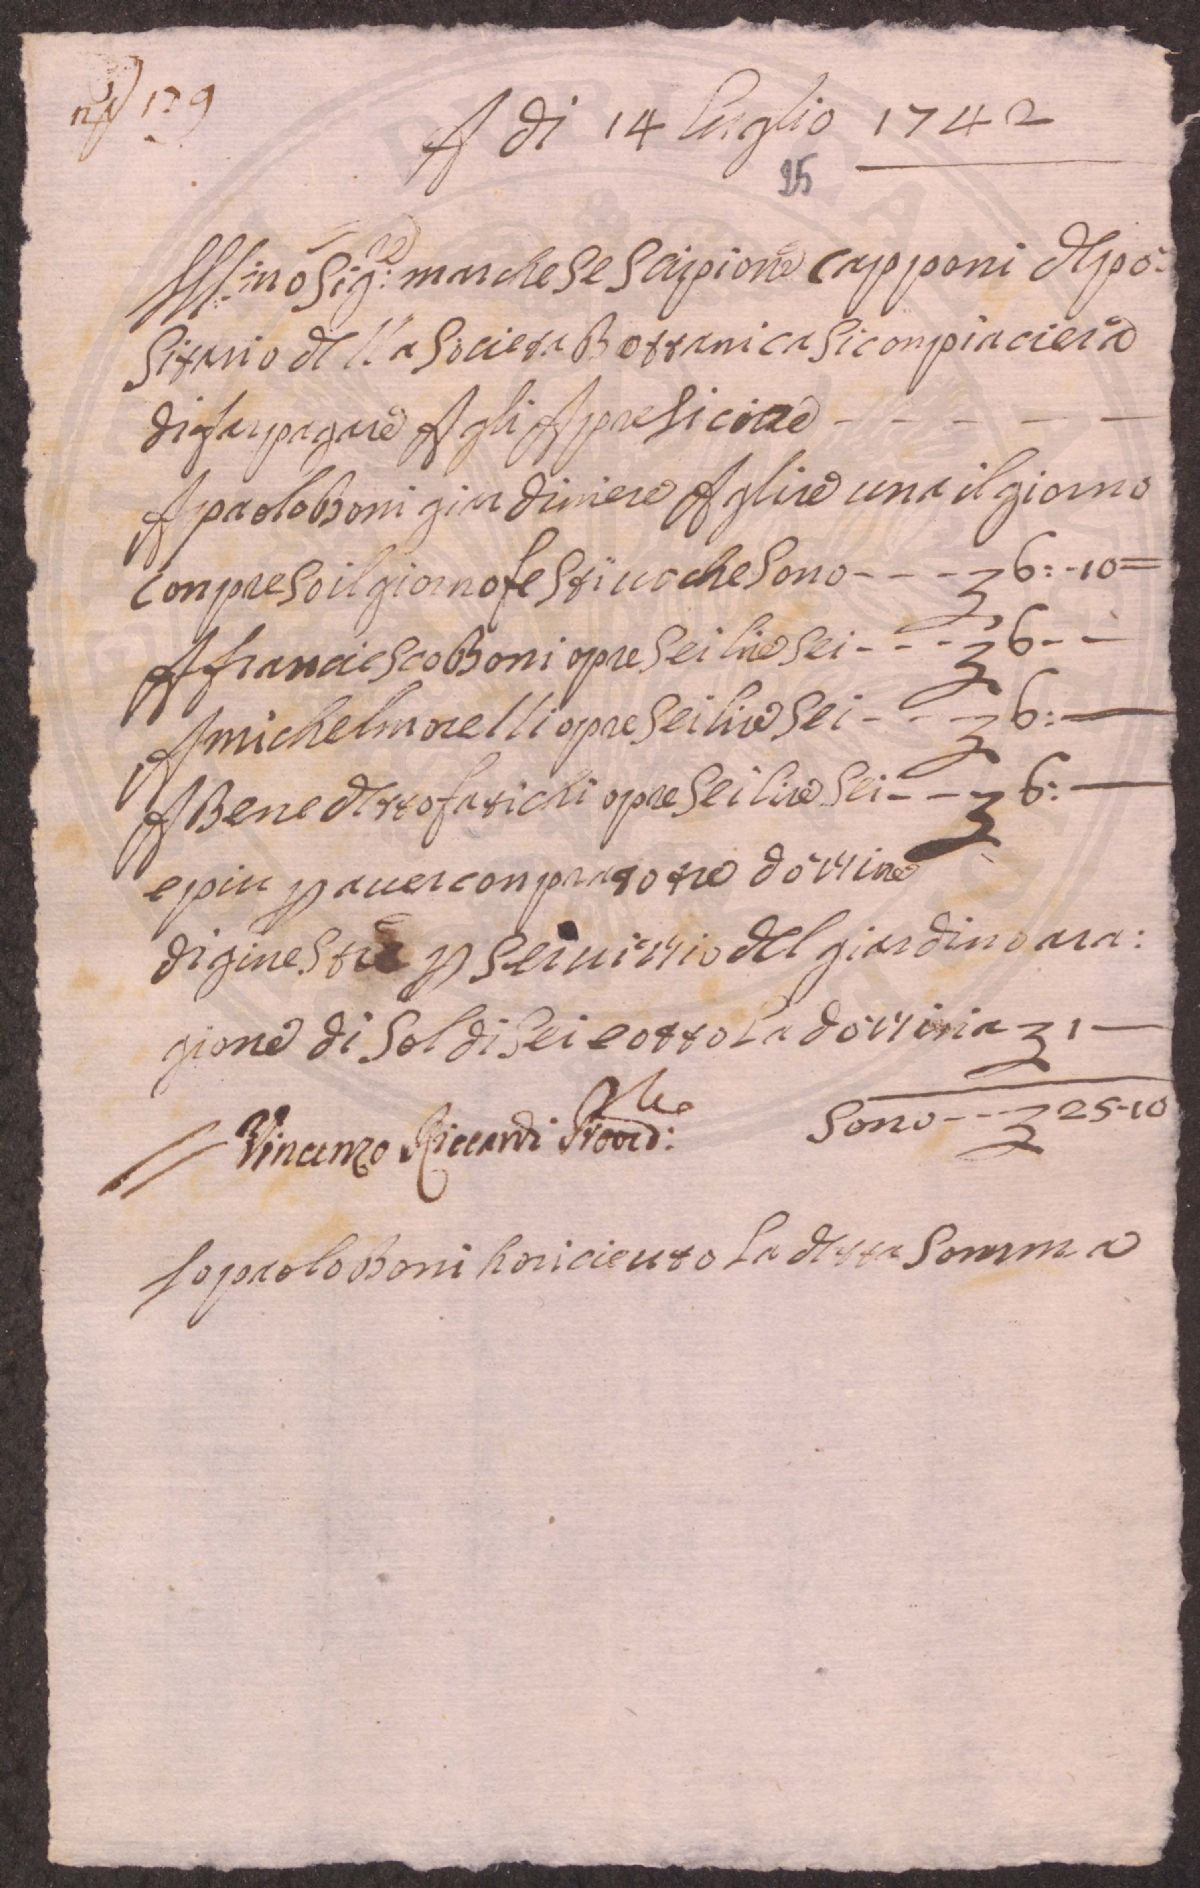 A di 14 luglio 1742
25
Ill:mo Sig:re marchese Scipione Capponi depo:
sitario della Societa Bottanica si conpiacierà
di far pagare A gli Apresicitae
A paolo Boni giardiniere A glire una il giorno
conpreso il giorno festiuo che sono - - - 6: - 10 =
A franciesco Boni opre sei lire sei - - - 6 - -
A michel morelli opre sei lire sei - - - 6: -
A Benedetto fatichi opre sei lire sei - - - 6: -
e piu p auer conprato tre dozzine
di ginestre p seruizzio del giardino a ra:
gione di soldi sei e otto la dozzina 1 -
Sono - - 25 - 10
Vincenzo Riccardi Proved:re
Io paolo Boni ho riceuto la detta somma